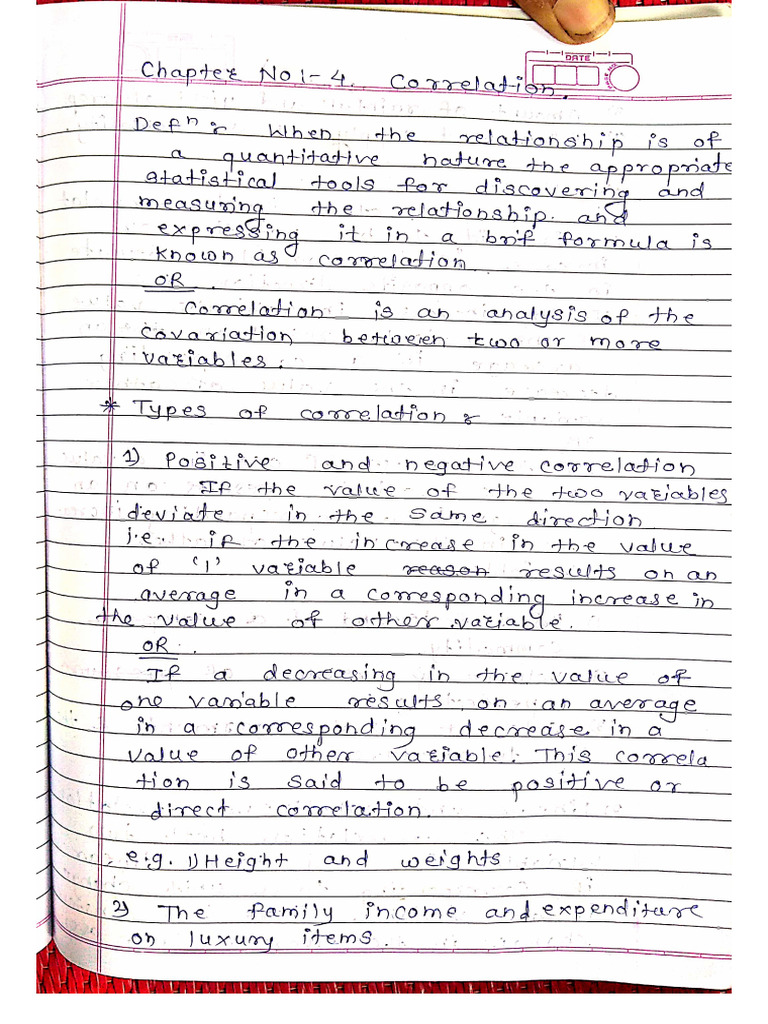 DATE
Chapter No :- 4. Correlation.
Defⁿ : When the relationship is of
a quantitative nature the appropriate
statistical tools for discovering and
measuring the relationship and
expressing it in a brif formula is
known as correlation
OR
Correlation is an analysis of the
covariation between two or more
variables.
* Types of correlation :
1) Positive and negative correlation
If the value of the two variables
deviate in the same direction
i.e. if the increase in the value
of '1' variable reason results on an
average in a corresponding increase in
the value of other variable.
OR
If a decreasing in the value of
one variable results on an average
in a corresponding decrease in a
value of other variable. This correla
tion is said to be positive or
direct correlation.
e.g. 1) Height and weights
2) The family income and expenditure
on luxury items.